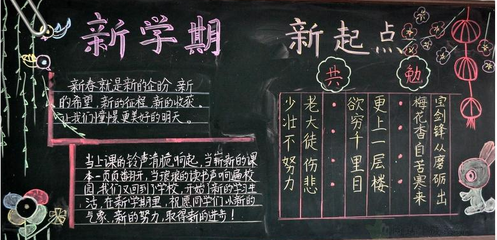 新学期 新起点
新春就是新的企盼 新
的希望、新的征程、新的收获。
让我们憧憬更美好的明天。
当上课的铃声清脆响起,当崭新的课
本一页页翻开,当琅琅的读书声响遍校
园 我们又回到了学校,开始了新的学习生
活,在新学期里,祝愿同学们以新的
气象,新的努力,取得新的进步!
共勉
宝剑锋从磨砺出
梅花香自苦寒来
更上一层楼
欲穷千里目
老大徒伤悲
少壮不努力